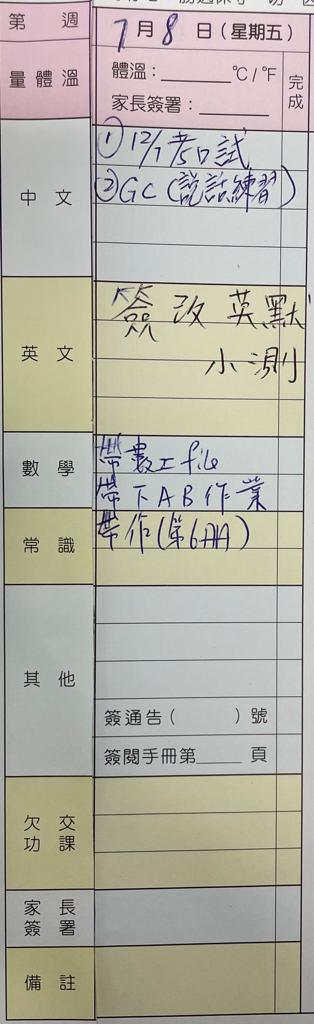 第 週
7 月 8 日（星期五）
量體溫
體溫：______ °C/°F
家長簽署：______
完成
中文
① 12/1考口試
② GC (說話練習)
英文
簽改英默
小測
數學
帶數工file
帶下AB作業
常識
帶作(第6
其他
簽通告（ ）號
簽閱手冊第____頁
欠交功課
家長簽署
備註